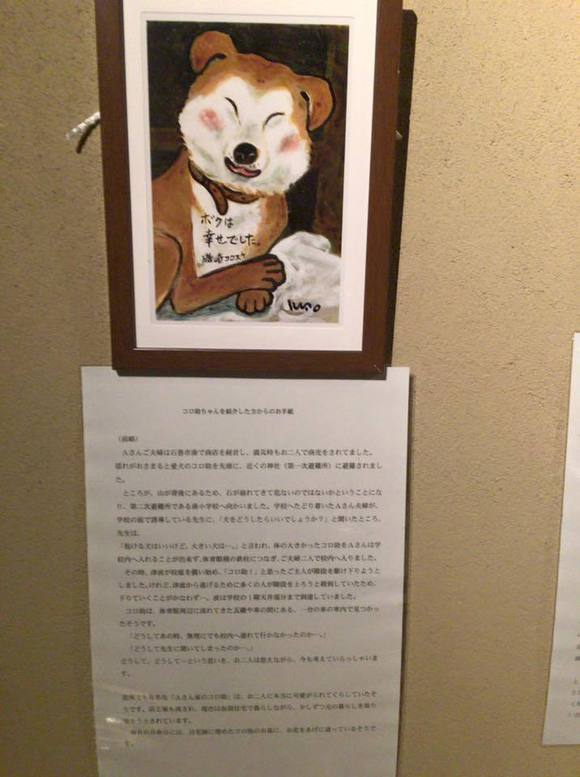 ボクは
幸せでした。
コロ助ちゃんを紹介した方からのお手紙
（前略）
Aさんご夫婦は石巻市湊で商店を経営し、震災時もお二人で商売をされてました。
揺れがおさまると愛犬のコロ助を先頭に、近くの神社（第一次避難所）に避難されまし
た。
ところが、山が背後にあるため、石が崩れてきて危ないのではないかということにな
り、第二次避難所である湊小学校へ向かいました。学校へたどり着いたAさん夫婦が、
学校の前で誘導している先生に、「犬をどうしたらいいでしょうか？」と聞いたところ、
先生は、
「抱ける犬はいいけど、大きい犬は…。」と言われ、体の大きかったコロ助をAさんは学
校内へ入れることが出来ず、体育館横の鉄柱につなぎ、ご夫婦二人で校内へ入りました。
その時、津波が校庭を襲い始め、「コロ助！」と思ったご主人が階段を駆け下りようと
しました。けれど、津波から逃げるために多くの人が階段を上ろうと殺到していたため、
下りていくことがかなわず…。波は学校の1階天井部分まで到達していました。
コロ助は、体育館周辺に流れてきた瓦礫や車の間にある、一台の車の車内で見つかっ
たそうです。
「どうしてあの時、無理にでも校内へ連れて行かなかったのか…。」
「どうして先生に聞いてしまったのか…。」
どうして、どうして…という思いを、お二人は抱えながら、今も考えていらっしゃいま
す。
近所でも有名な「Aさん家のコロ助」は、お二人に本当に可愛がられてくらしていたそ
うです。店と家も流され、現在は仮設住宅で暮らしながら、少しずつ元の暮らしを取り
うとされています。
毎月の月命日には、自宅跡に埋めたコロ助のお墓に、お花をあげに通っているそうで
す。